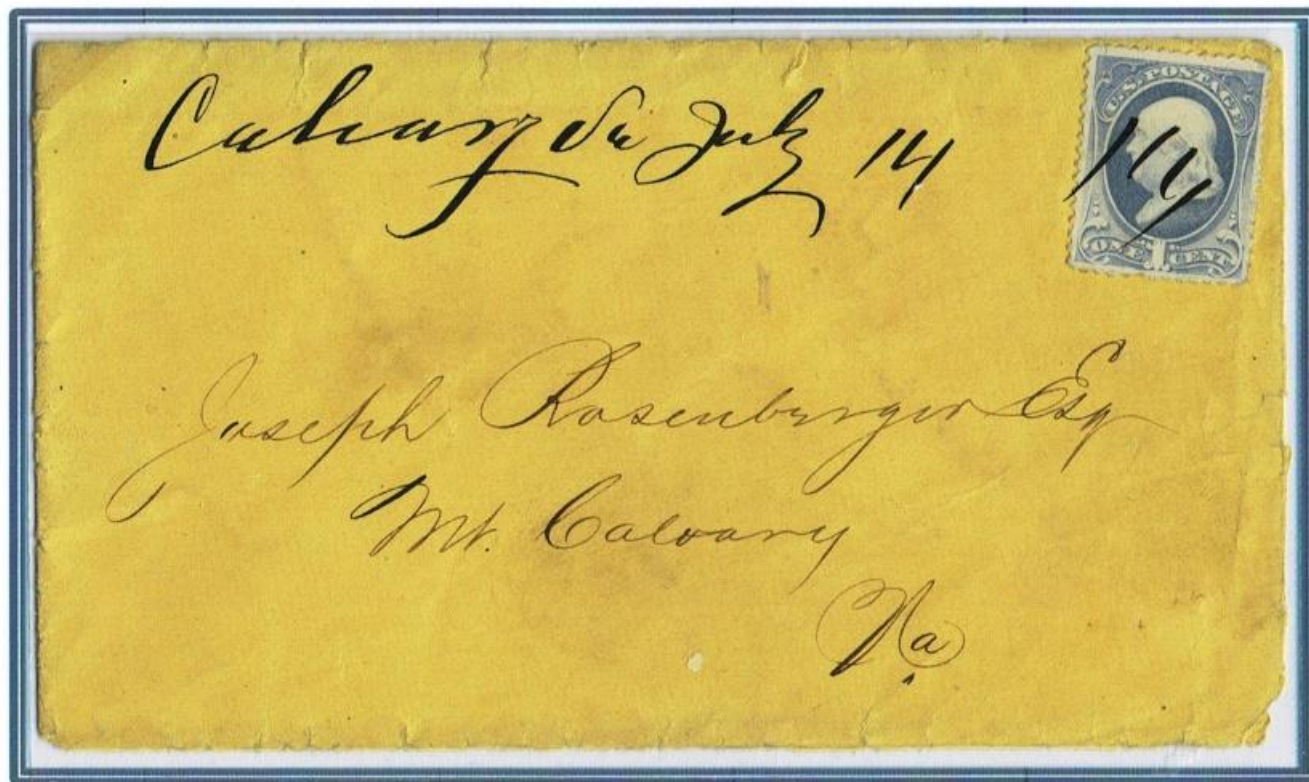 Calvary Va July 14
U.S. POSTAGE
ONE 1 CENT
Joseph Rosenberger Esq
Mt. Calvary
Va